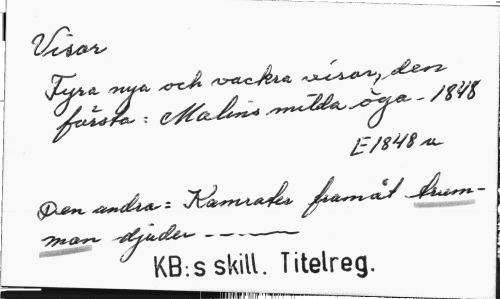 Visor
Fyra nya och vackra visor, den
första: Malins milda öga - 1848
E1848 u
Den andra: Kamrater framåt trum-
man djuder - - - -
KB:s skill. Titelreg.